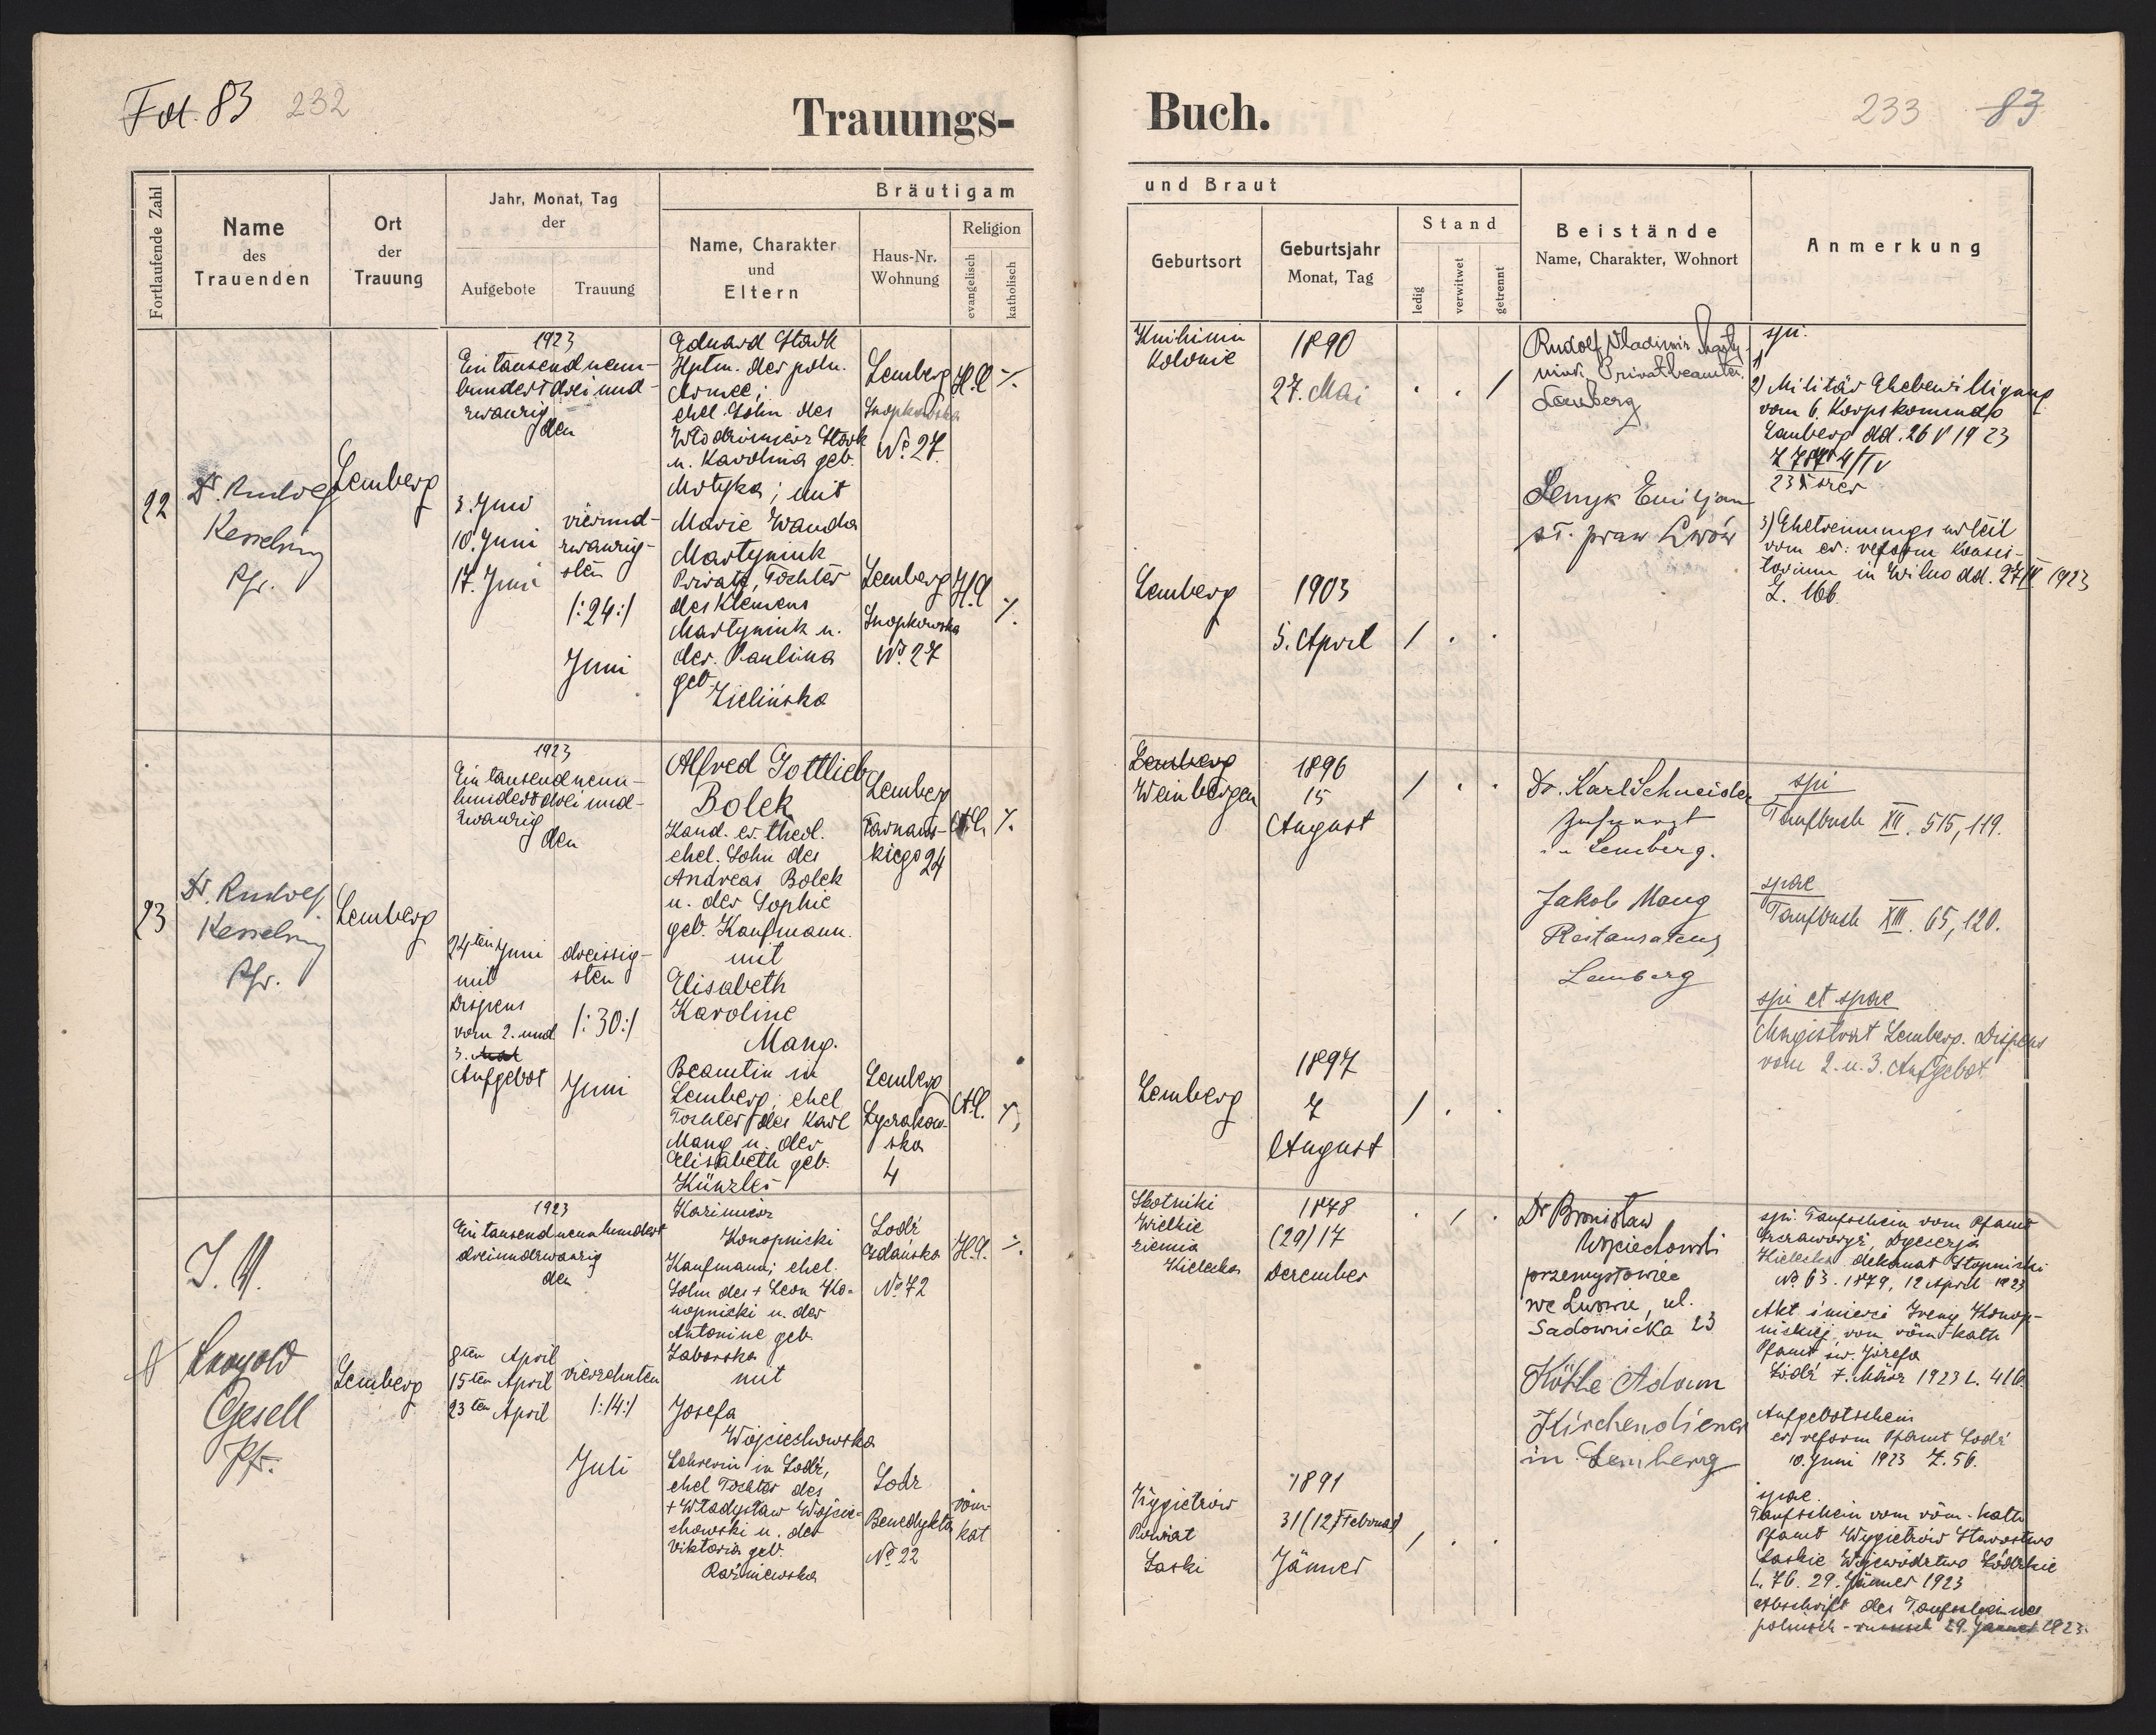 Fol. 83 232
Trauungs-
Fortlaufende Zahl
Name
des
Trauenden
Ort
der
Trauung
Jahr, Monat, Tag
der
Aufgebote
Trauung
Bräutigam
Name, Charakter
und
Eltern
Haus-Nr.
Wohnung
Religion
evangelisch
katholisch
22
Dr. Rudolf
Kesselring
Pfr.
Lemberg
1923
Ein tausend neun-
hundert drei und-
zwanzig
den
3. Juni
10. Juni
17. Juni
vierund-
zwanzig-
sten
/:24:/
Juni
Eduard Stark
Hptm. der poln.
Armee;
ehel. Sohn des
Włodzimierz Stark
u. Karolina geb.
Motyka; mit
Marie Wanda
Martyniuk
Private, Tochter
des Klemens
Martyniuk u.
der Paulina
geb.
Zielińska
Lemberg
Snopkowska
No. 27
H.C.
Lemberg
Snopkowska
No. 27
H.C.
23
Dr. Rudolf
Kesselring
Pfr.
Lemberg
1923
Ein tausend neun-
hundert drei und-
zwanzig
den
24ten Juni
mit
Dispens
vom 2. und
3.
Aufgebot
dreissig-
sten
/:30:/
Juni
Alfred Gottlieb
Bolek
Kand. ev. theol.
ehel. Sohn des
Andreas Bolek
u. der Sophie
geb. Kaufmann.
mit
Elisabeth
Karoline
Mang.
Beamtin in
Lemberg; ehel.
Tochter des Karl
Mang u. der
Elisabeth geb.
Künzler
Lemberg
Tarnaws-
kiego 24
A.C.
Lemberg
Łyczakow-
ska
4
A.C.
Leopold
Gesell
Pfr.
Lemberg
1923
Ein tausend neunhundert
dreiundzwanzig
den
8ten April
15ten April
23ten April
vierzehnten
/:14:/
Juli
Kazimierz
Konopnicki
Kaufmann; ehel.
Sohn des + Leon Ko-
nopnicki u. der
Antonine geb.
Zaborska
mit
Josefa
Wojciechowska
Lehrerin in Lodź,
ehel Tochter des
+ Władysław Wojcie-
chowski u. der
Viktoria geb.
Raźniewska
Lodź
Gdańska
No 72
H.C.
Lodz
Benedykta
No. 22
röm-
kat
Buch.
233 83
und Braut
Geburtsort
Geburtsjahr
Monat, Tag
Stand
ledig
verwitwet
getrennt
Beistände
Name, Charakter, Wohnort
Anmerkung
Knihinin
Kolonie
1890
27. Mai
Lemberg
1903
5. April
Rudolf Wladimir
Privatbeamter
Lemberg
Lenyk Emiljan
st. praw Lwów
spi.
1)
2) Militär Ehebewilligung
vom 6. Korpskommdo
Lemberg dd. 26 V 1923
3) Ehetrennungsurteil
vom ev: reform Konsis-
torium in Wilno dd. 27 1923
Z. 166
Lemberg
Weinbergen
1896
15
August
Lemberg
1897
7
August
Dr. Karl Schneider
Lemberg.
Jakob Mang
Restaurateur
Lemberg
spi
Taufbuch XII. 515, 119.
spae
Taufbuch XIII. 65, 120.
spi et spae
Magistrat Lemberg. Dispens
vom 2. u. 3. Aufgebot
Skotniki
Wielkie
ziemia
Kielecka
1878
(29) 17
Dezember
Wygiełzów
Powiat
Łaski
1891
31 (12) Februar)
Jänner
Dr Bronisław
Wojciechowski
przemysłowiec
we Lwowie, ul.
Sadownicka 23
Köhle Adam
Kirchendiener
in Lemberg
spi. Taufschein vom Pfarramt
Kielecka dekanat Stopnicki
No. 63. 1879, 12 April 1923
Akt śmierci Ireny Konop-
nickiej, vom röm-kath
Pfamt św. Józefa
Łódź 7. März 1923 L. 416
Aufgebotschein
ev. reform Pfamt Lodź
10. Juni 1923 Z. 56.
spae.
Taufschein vom röm.-kath
Pfamt Wygiełzów Starostwo
Łaskie Województwo Łódzkie
L. 76. 29. Jänner 1923
Abschrift des Taufscheines
polnisch - russisch 29. Jänner 1923.